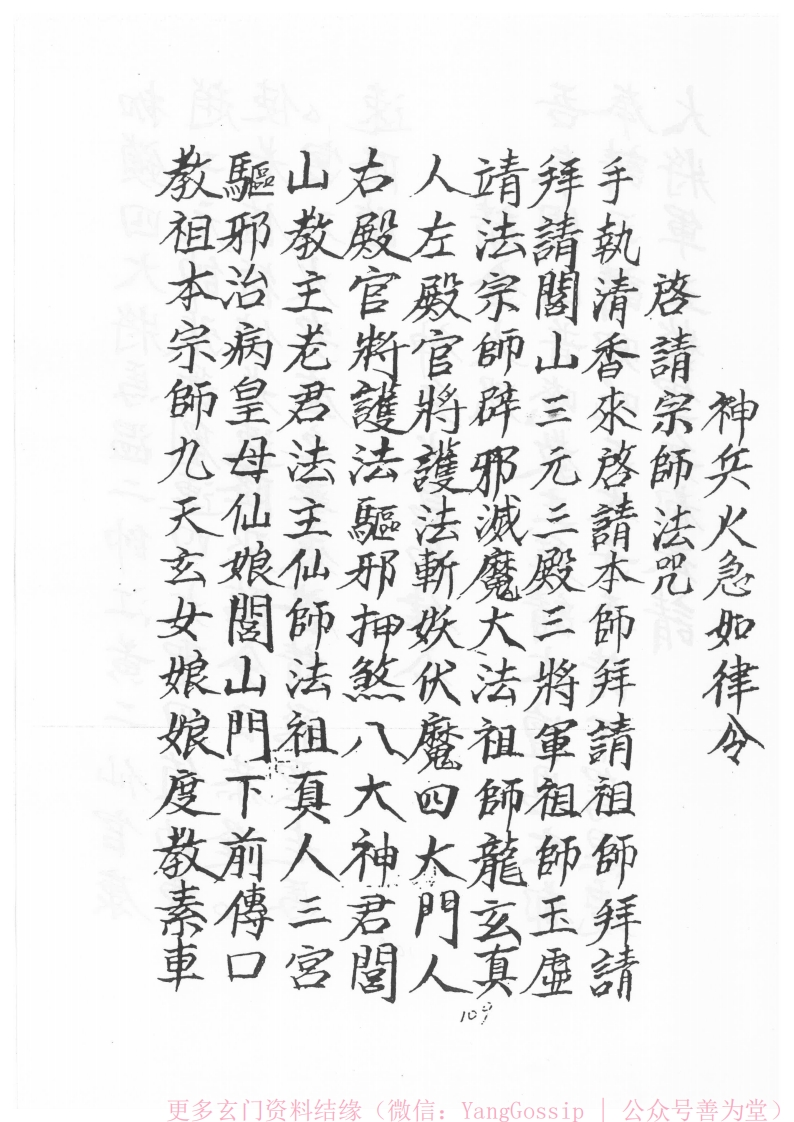 神兵火急如律令
啓請宗師法咒
手執清香來啓請本師拜請祖師拜請
拜請閭山三元三殿三將軍祖師玉虛
靖法宗師辟邪滅魔大法祖師龍玄真
人左殿官將護法斬妖伏魔四大門人
右殿官將護法驅邪押煞八大神君閭
山教主老君法主仙師法祖真人三宮
驅邪治病皇母仙娘閭山門下前傳口
教祖本宗師九天玄女娘娘度教素車
109
更多玄门资料结缘（微信：YangGossip | 公众号善为堂）